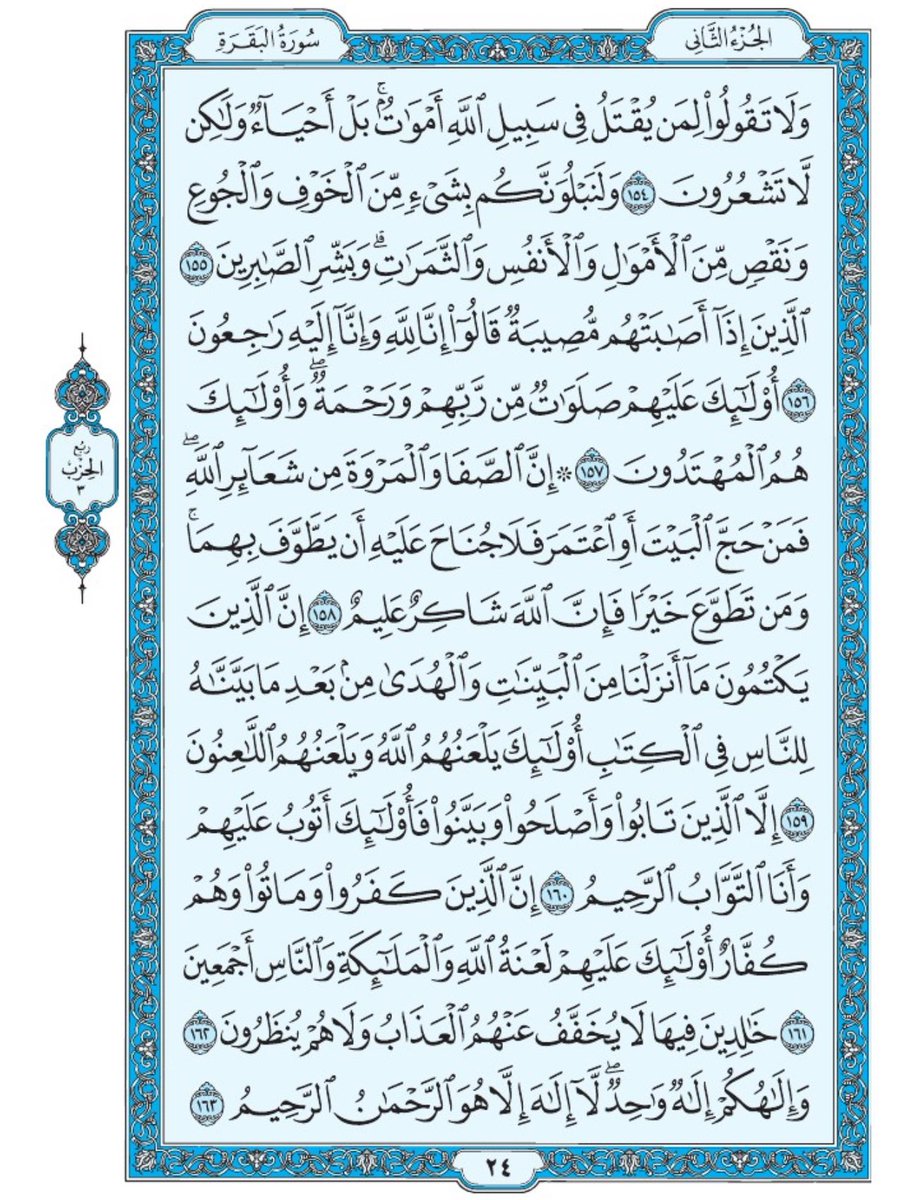 الجُزْءُ الثَّانِى
سُورَةُ البَقَرَةِ
وَلَا تَقُولُوا۟ لِمَن يُقْتَلُ فِى سَبِيلِ ٱللَّهِ أَمْوَٰتٌۢ ۚ بَلْ أَحْيَآءٌ وَلَٰكِن
لَّا تَشْعُرُونَ ١٥٤ وَلَنَبْلُوَنَّكُم بِشَىْءٍ مِّنَ ٱلْخَوْفِ وَٱلْجُوعِ
وَنَقْصٍ مِّنَ ٱلْأَمْوَٰلِ وَٱلْأَنفُسِ وَٱلثَّمَرَٰتِ ۗ وَبَشِّرِ ٱلصَّٰبِرِينَ ١٥٥
ٱلَّذِينَ إِذَآ أَصَٰبَتْهُم مُّصِيبَةٌ قَالُوٓا۟ إِنَّا لِلَّهِ وَإِنَّآ إِلَيْهِ رَٰجِعُونَ
١٥٦ أُو۟لَٰٓئِكَ عَلَيْهِمْ صَلَوَٰتٌ مِّن رَّبِّهِمْ وَرَحْمَةٌ ۖ وَأُو۟لَٰٓئِكَ
هُمُ ٱلْمُهْتَدُونَ ١٥٧ ۞ إِنَّ ٱلصَّفَا وَٱلْمَرْوَةَ مِن شَعَآئِرِ ٱللَّهِ ۖ
فَمَنْ حَجَّ ٱلْبَيْتَ أَوِ ٱعْتَمَرَ فَلَا جُنَاحَ عَلَيْهِ أَن يَطَّوَّفَ بِهِمَا ۚ
وَمَن تَطَوَّعَ خَيْرًا فَإِنَّ ٱللَّهَ شَاكِرٌ عَلِيمٌ ١٥٨ إِنَّ ٱلَّذِينَ
يَكْتُمُونَ مَآ أَنزَلْنَا مِنَ ٱلْبَيِّنَٰتِ وَٱلْهُدَىٰ مِنۢ بَعْدِ مَا بَيَّنَّٰهُ
لِلنَّاسِ فِى ٱلْكِتَٰبِ أُو۟لَٰٓئِكَ يَلْعَنُهُمُ ٱللَّهُ وَيَلْعَنُهُمُ ٱللَّٰعِنُونَ
١٥٩ إِلَّا ٱلَّذِينَ تَابُوا۟ وَأَصْلَحُوا۟ وَبَيَّنُوا۟ فَأُو۟لَٰٓئِكَ أَتُوبُ عَلَيْهِمْ
وَأَنَا ٱلتَّوَّابُ ٱلرَّحِيمُ ١٦٠ إِنَّ ٱلَّذِينَ كَفَرُوا۟ وَمَاتُوا۟ وَهُمْ
كُفَّارٌ أُو۟لَٰٓئِكَ عَلَيْهِمْ لَعْنَةُ ٱللَّهِ وَٱلْمَلَٰٓئِكَةِ وَٱلنَّاسِ أَجْمَعِينَ
١٦١ خَٰلِدِينَ فِيهَا لَا يُخَفَّفُ عَنْهُمُ ٱلْعَذَابُ وَلَا هُمْ يُنظَرُونَ ١٦٢
وَإِلَٰهُكُمْ إِلَٰهٌ وَٰحِدٌ ۖ لَّآ إِلَٰهَ إِلَّا هُوَ ٱلرَّحْمَٰنُ ٱلرَّحِيمُ ١٦٣
رُبْع
الحِزْب
٣
٢٤